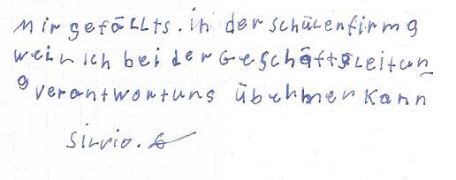 Mir gefällts. in der schülenfirmg
weil ich bei der Geschäftsleitun
g verantwortung übehmen kann
Silvio. G